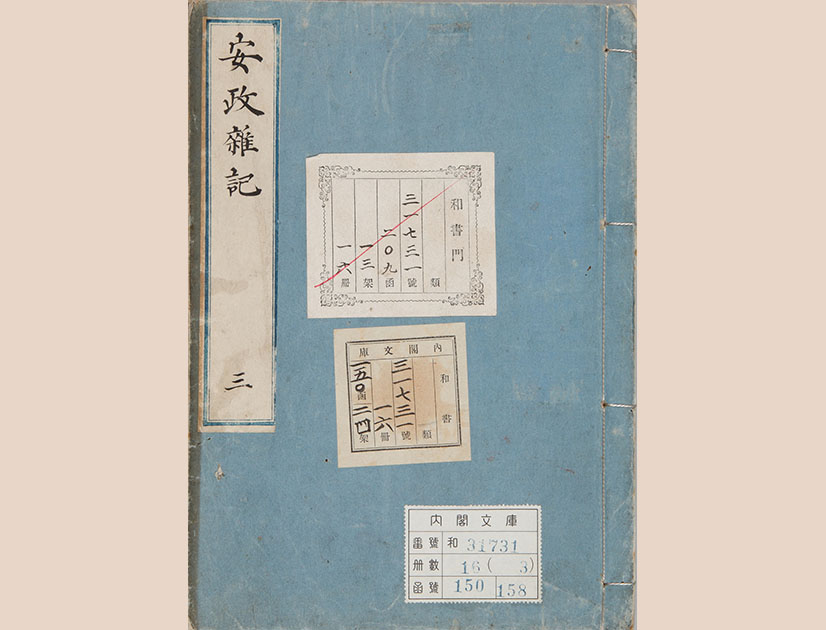 安政雜記
三
和書門
類
三一七三一號
二〇九函
一三架
一六冊
內閣文庫
和書
類
三一七三一號
一六冊
一五〇函二四架
內閣文庫
番號 和 31731
冊數 16 ( 3)
函號 150 158